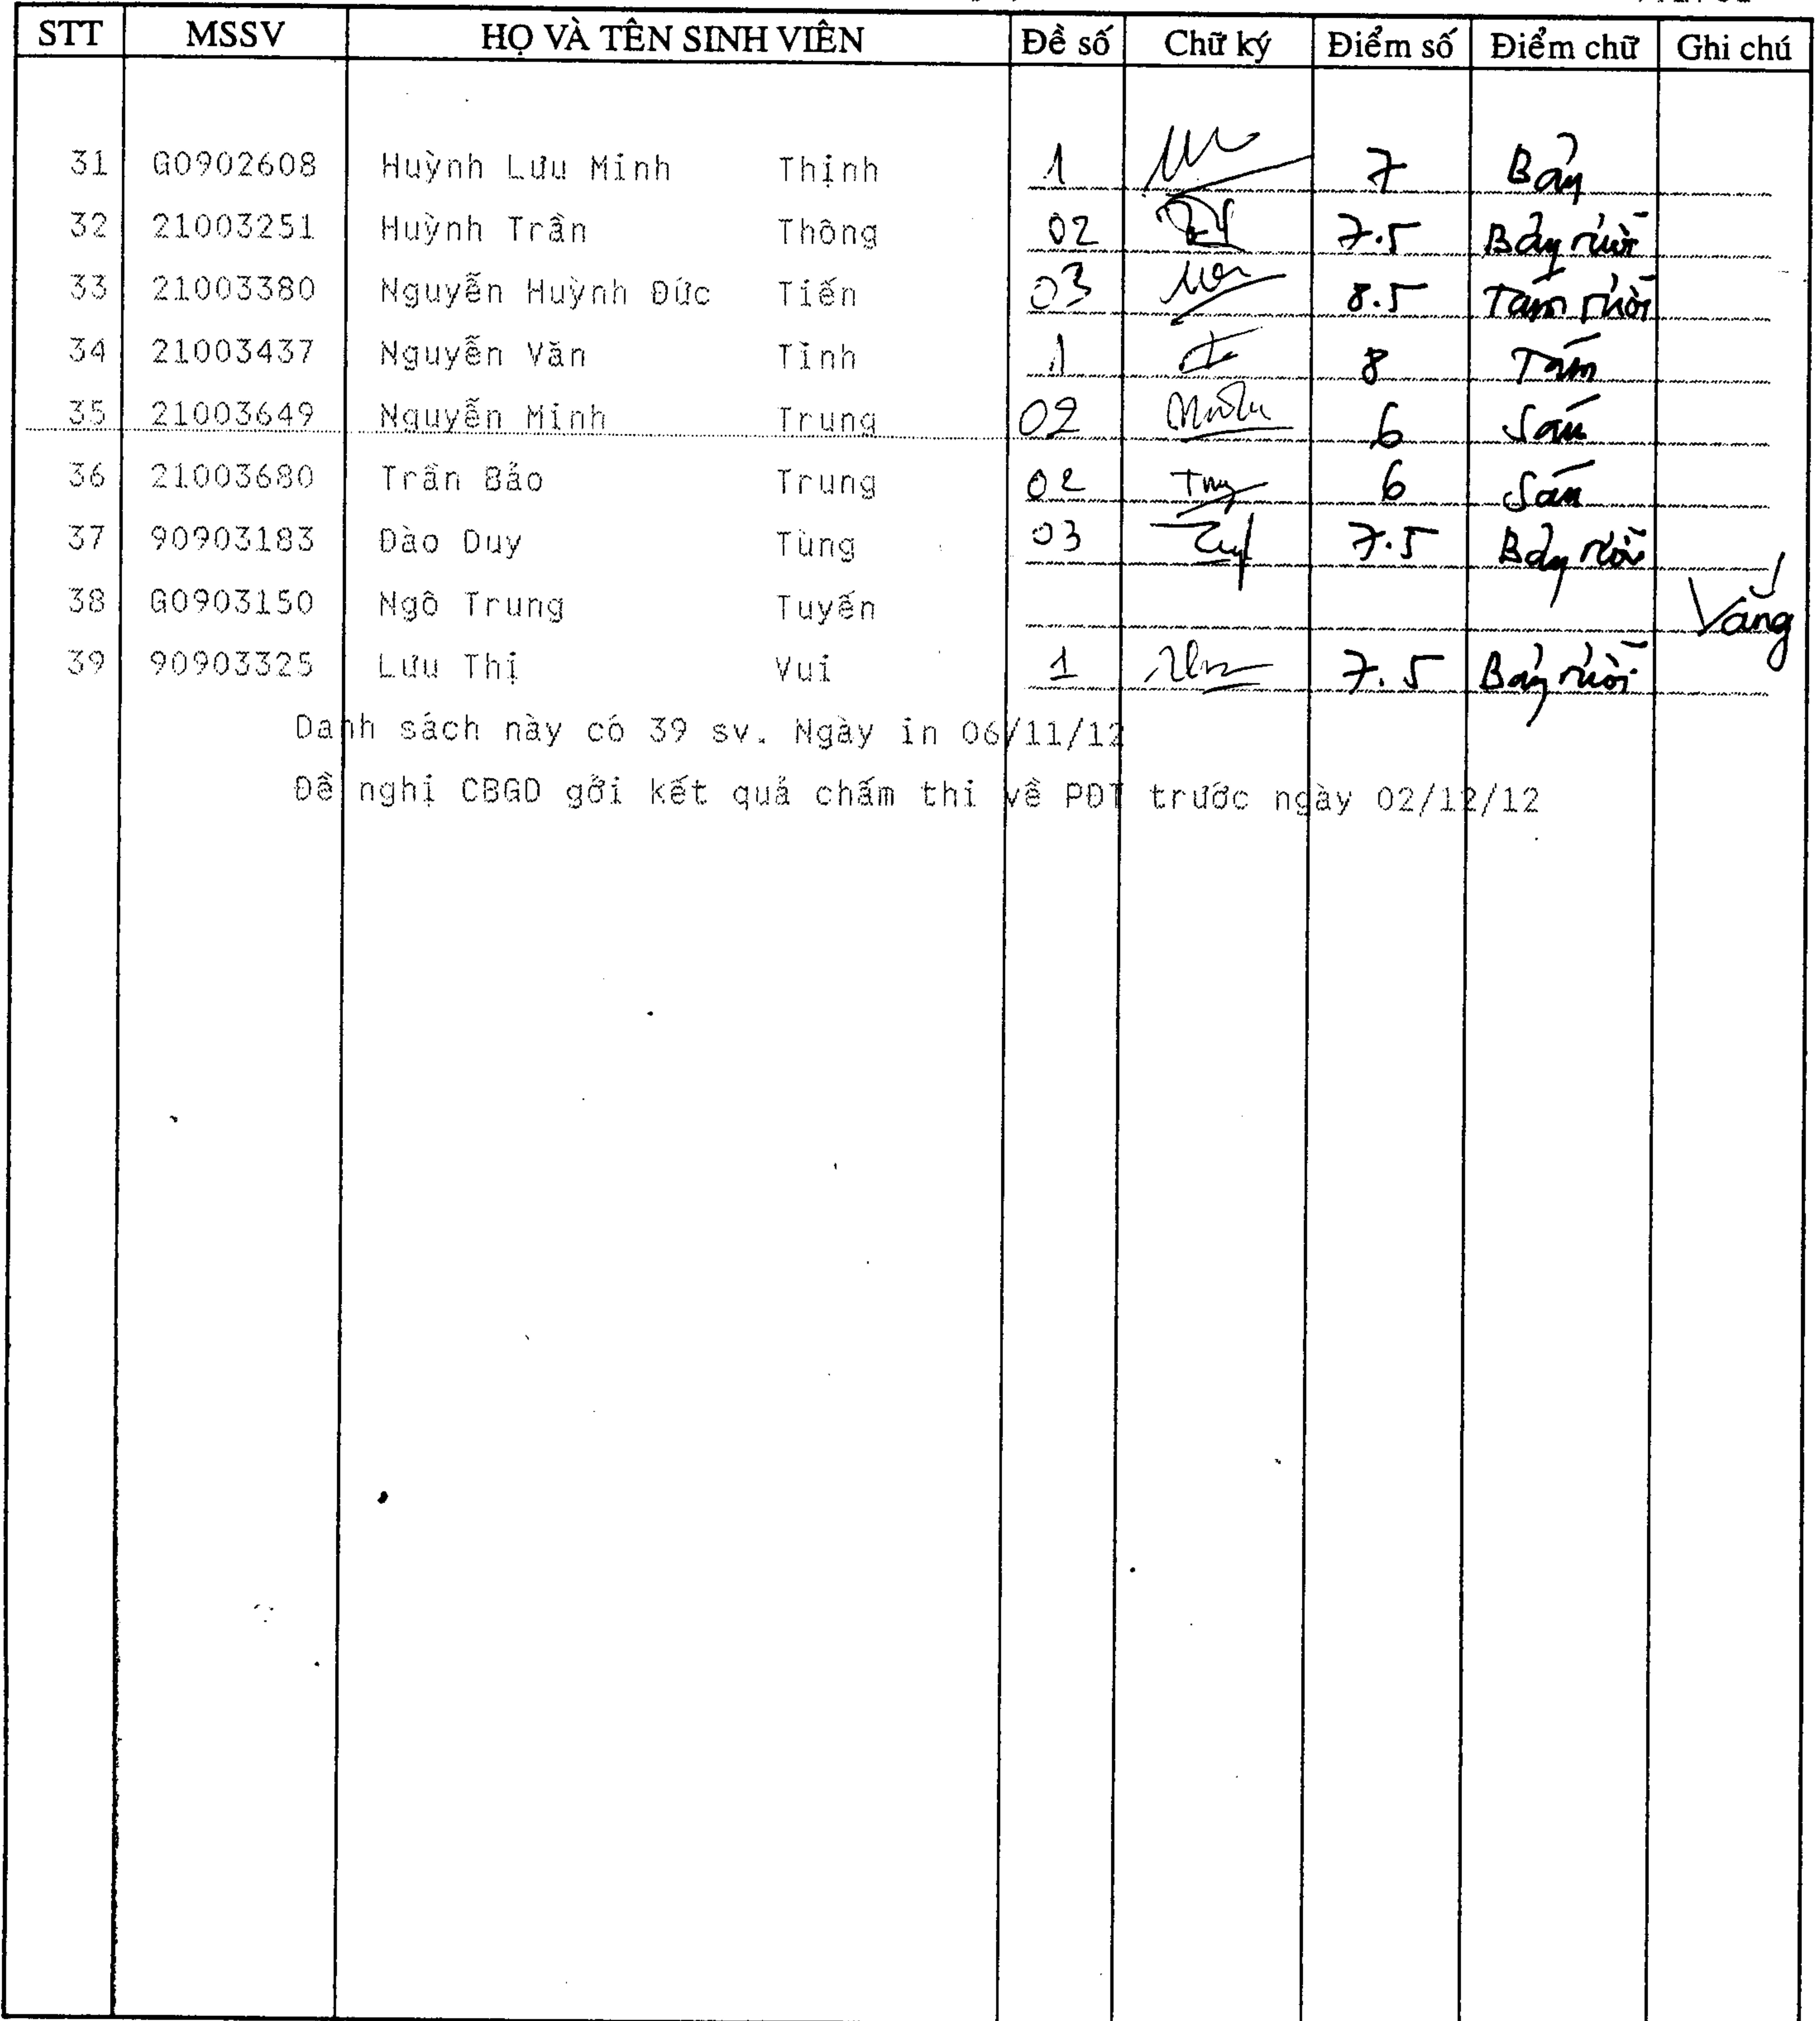 STT MSSV HỌ VÀ TÊN SINH VIÊN Đề số Chữ ký Điểm số Điểm chữ Ghi chú
31 G0902608 Huỳnh Lưu Minh Thịnh 1 7 Bảy
32 21003251 Huỳnh Trần Thông 02 7.5 Bảy rưỡi
33 21003380 Nguyễn Huỳnh Đức Tiến 03 8.5 Tám rưỡi
34 21003437 Nguyễn Văn Tỉnh 1 8 Tám
35 21003649 Nguyễn Minh Trung 02 6 Sáu
36 21003680 Trần Bảo Trung 02 6 Sáu
37 90903183 Đào Duy Tùng 03 7.5 Bảy rưỡi
38 G0903150 Ngô Trung Tuyến Vắng
39 90903325 Lưu Thị Vui 1 7.5 Bảy rưỡi
Danh sách này có 39 sv. Ngày in 06/11/12
Đề nghị CBGD gởi kết quả chấm thi về PĐT trước ngày 02/12/12